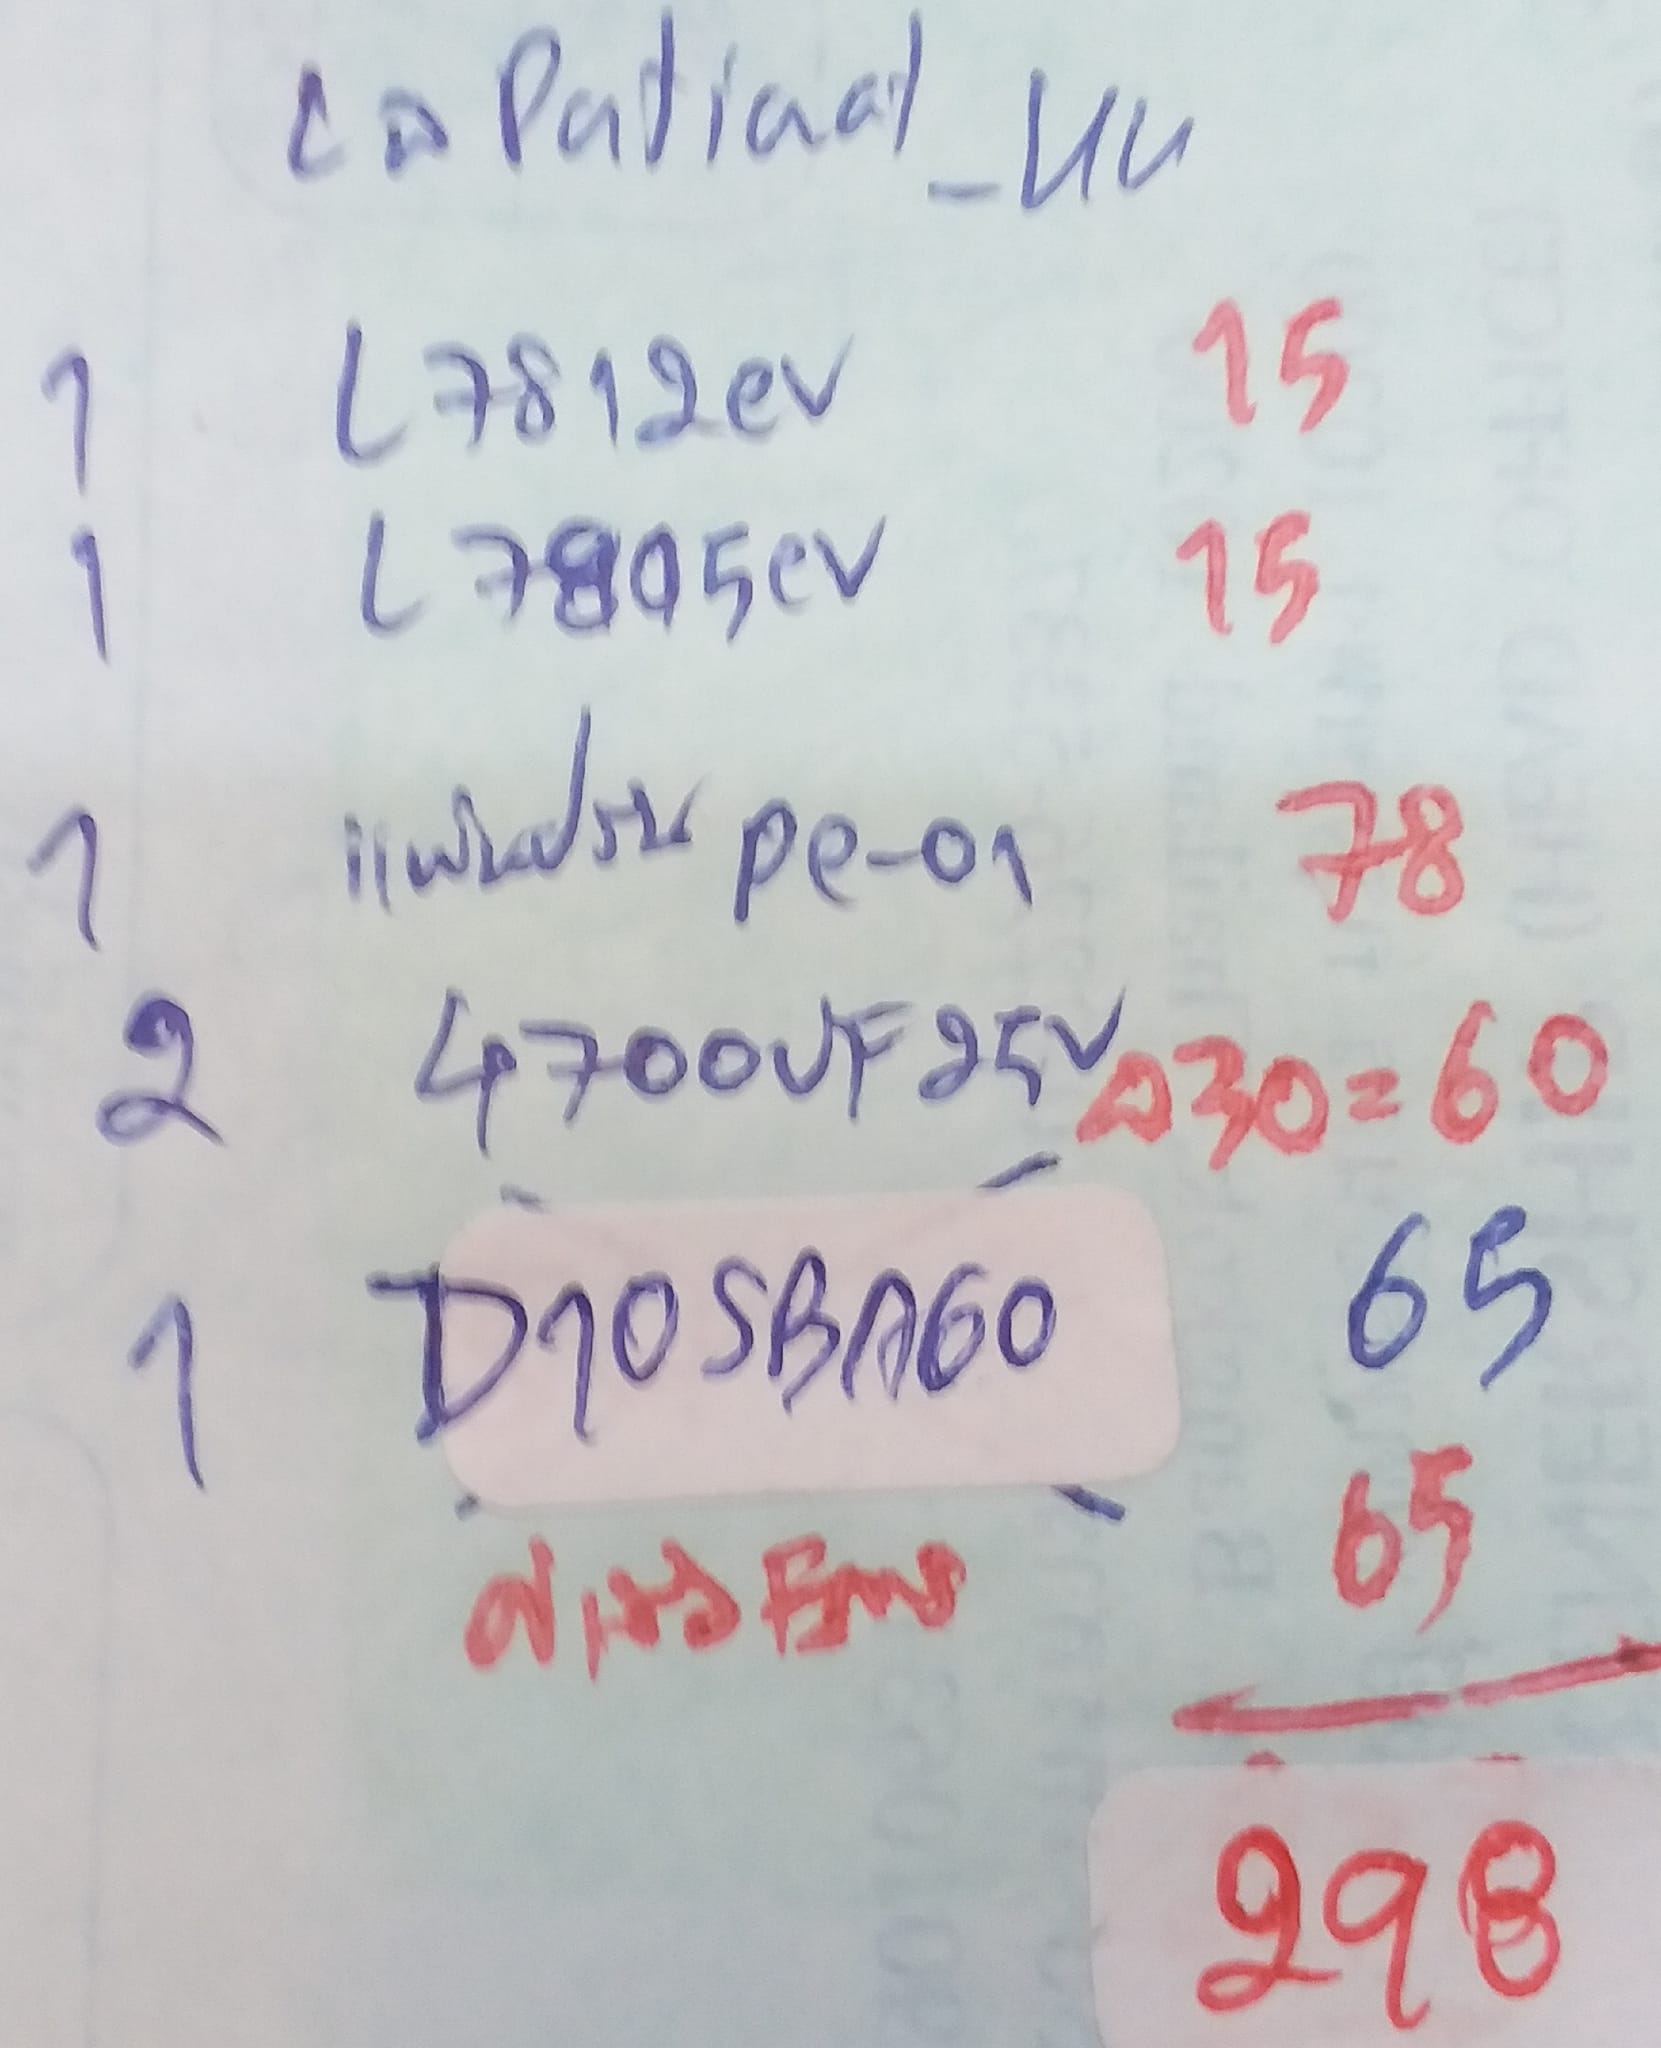 1 L7812cv 15
1 L7805cv 15
1 แผ่นปริ้น pc-01 78
2 4700UF25V ละ30=60
1 D10SBA60 65
65
298